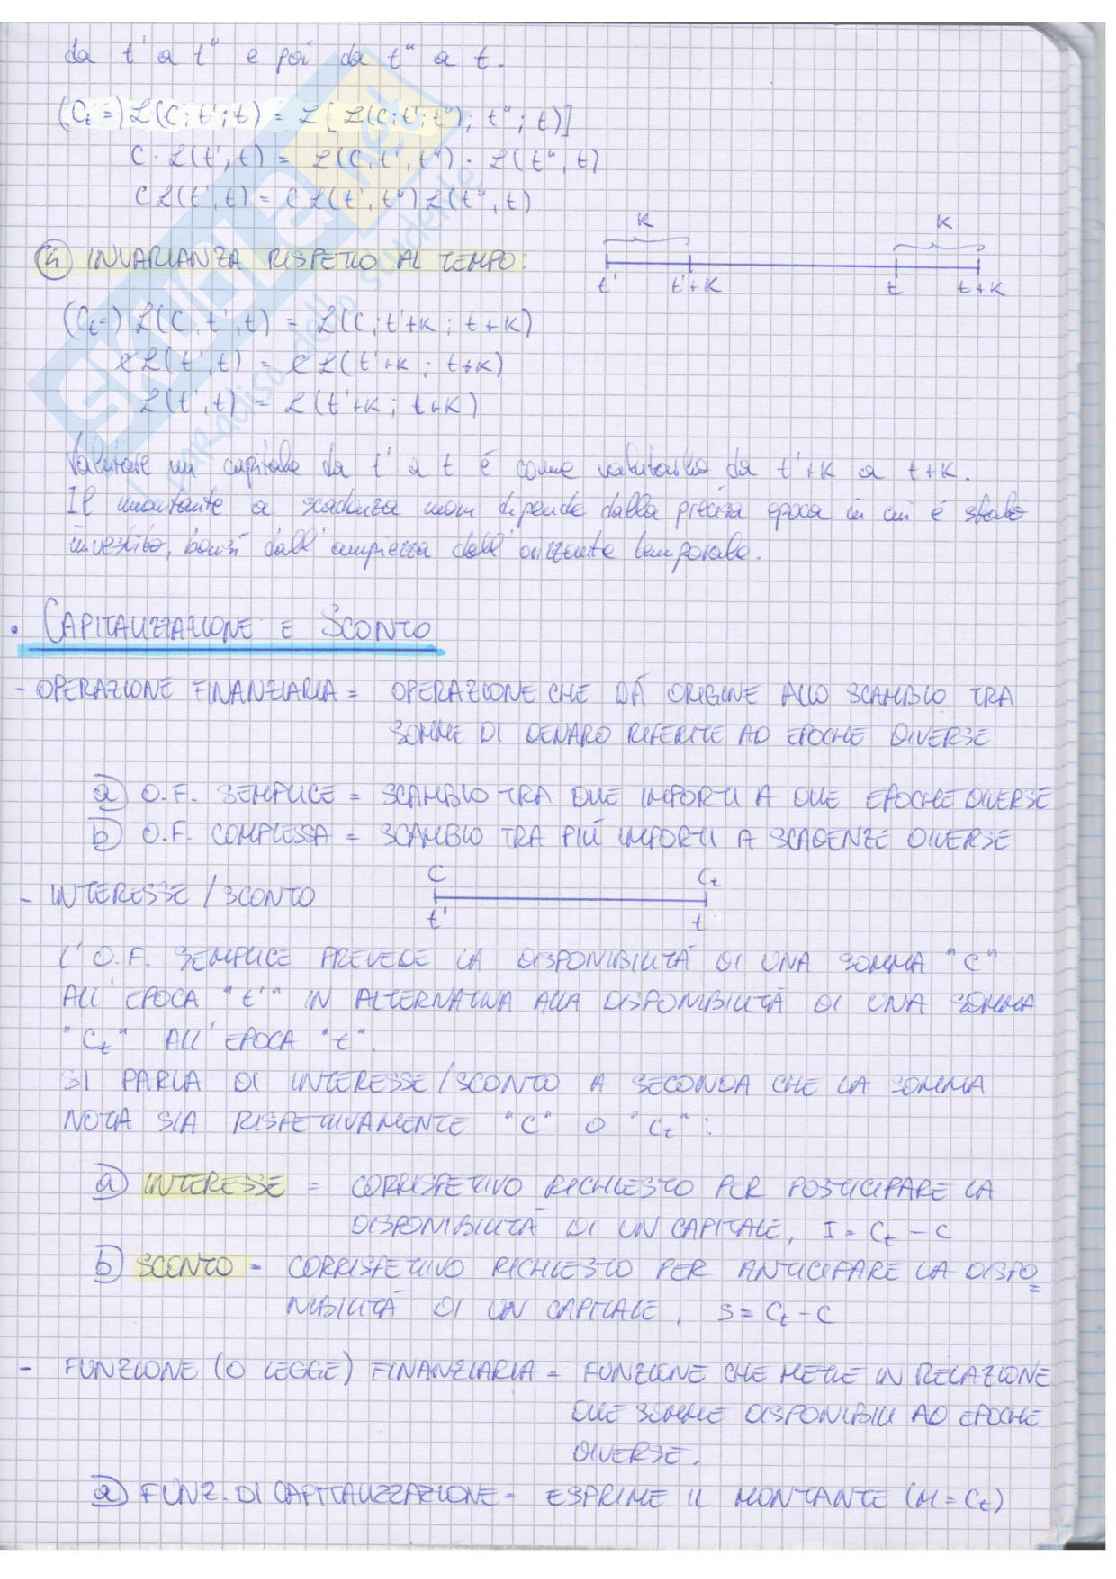 da t' a t" e poi da t" a t.
(Ct =) L(C; t'; t) = L[L(C; t'; t"); t"; t)]
C · L(t', t) = L(C, t', t") · L(t", t)
C L(t', t) = C L(t', t") L(t", t)
K K
④ INVARIANZA RISPETTO AL TEMPO:
t' t'+K t t+K
(Ct=) L(C, t', t) = L(C; t'+K; t+K)
C L(t', t) = C L(t'+K; t+K)
L(t', t) = L(t'+K; t+K)
Valutare un capitale da t' a t è come valutarlo da t'+K a t+K.
Il montante a scadenza non dipende dalla precisa epoca in cui è stato
investito, bensì dall'ampiezza dell'orizzonte temporale.
• CAPITALIZZAZIONE E SCONTO
- OPERAZIONE FINANZIARIA = OPERAZIONE CHE DÀ ORIGINE ALLO SCAMBIO TRA
SOMME DI DENARO RIFERITE AD EPOCHE DIVERSE
a) O.F. SEMPLICE = SCAMBIO TRA DUE IMPORTI A DUE EPOCHE DIVERSE
b) O.F. COMPLESSA = SCAMBIO TRA PIÙ IMPORTI A SCADENZE DIVERSE
C Ct
- INTERESSE / SCONTO
t' t
L'O.F. SEMPLICE PREVEDE LA DISPONIBILITÀ DI UNA SOMMA "C"
ALL'EPOCA "t'" IN ALTERNATIVA ALLA DISPONIBILITÀ DI UNA SOMMA
"Ct" ALL'EPOCA "t".
SI PARLA DI INTERESSE/SCONTO A SECONDA CHE LA SOMMA
NOTA SIA RISPETTIVAMENTE "C" O "Ct":
a) INTERESSE = CORRISPETTIVO RICHIESTO PER POSTICIPARE LA
DISPONIBILITÀ DI UN CAPITALE, I = Ct - C
b) SCONTO = CORRISPETTIVO RICHIESTO PER ANTICIPARE LA DISPO
NIBILITÀ DI UN CAPITALE, S = Ct - C
- FUNZIONE (O LEGGE) FINANZIARIA = FUNZIONE CHE METTE IN RELAZIONE
DUE SOMME DISPONIBILI AD EPOCHE
DIVERSE.
a) FUNZ. DI CAPITALIZZAZIONE = ESPRIME IL MONTANTE (M = Ct)